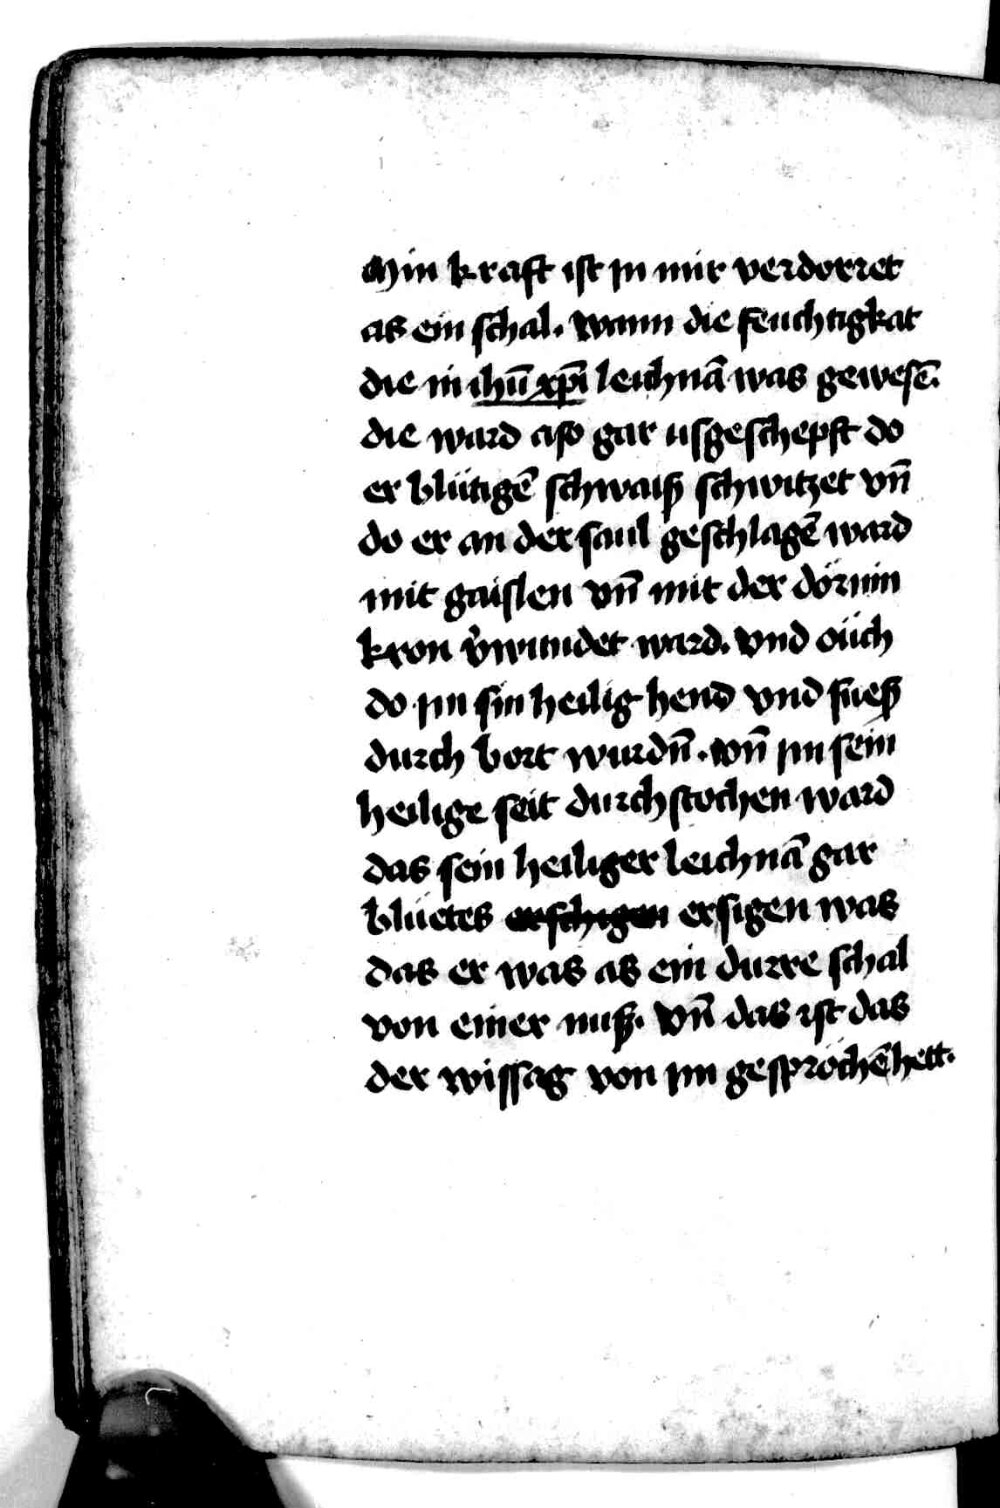 Min kraft ist jn mir verdorret
als ein schal. wann die feuchtigkat
die in ihū xp̄i leichnā was gewesē.
die ward also gar usgeschepft do
er blütigē schwaiß schwitzet vn̄
do er an der saul geschlagē ward
mit gaislen vn̄ mit der dörnin
kron v̓wundet ward. vnd oüch
do jm sin heilig hend vnd füeß
durch bort wurdn̄. vn̄ jm sein
heilige seit durchstochen ward
das sein heiliger leichnā gar
blüetes erschigen ersigen was
das er was als ein durre schal
von einer nuß. vn̄ das ist das
der wissag von jm gesprochē hett.